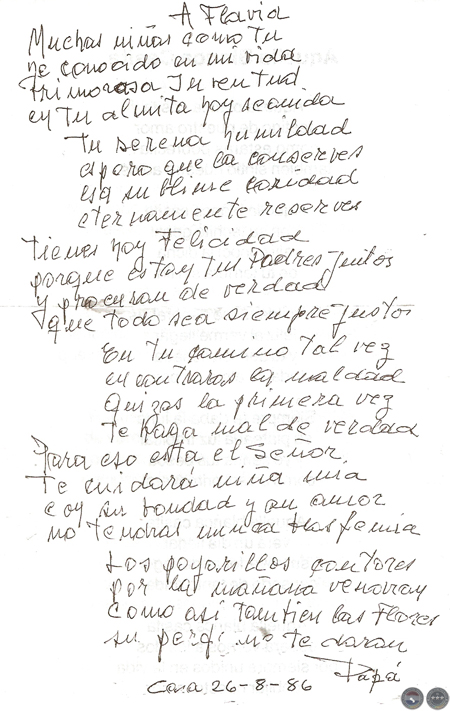 A Flavia
Muchas niñas como tu
he conocido en mi vida
primorosa Juventud
en tu almita hoy se anida
Tu serena humildad
espero que la conserves
esa sublime caridad
eternamente reserves
Tienes hoy Felicidad
porque estan tus Padres juntos
y procuran de verdad
que todo sea siempre justos
En tu camino tal vez
encontraras la maldad
quizas la primera vez
te haga mal de verdad
Para eso esta el Señor
te cuidará niña mia
con su bondad y su amor
no tendras nunca blasfemia
Los pajarillos cantores
por las mañana vendran
como asi tambien las Flores
su perfumo te daran
Papá
Casa 26-8-86